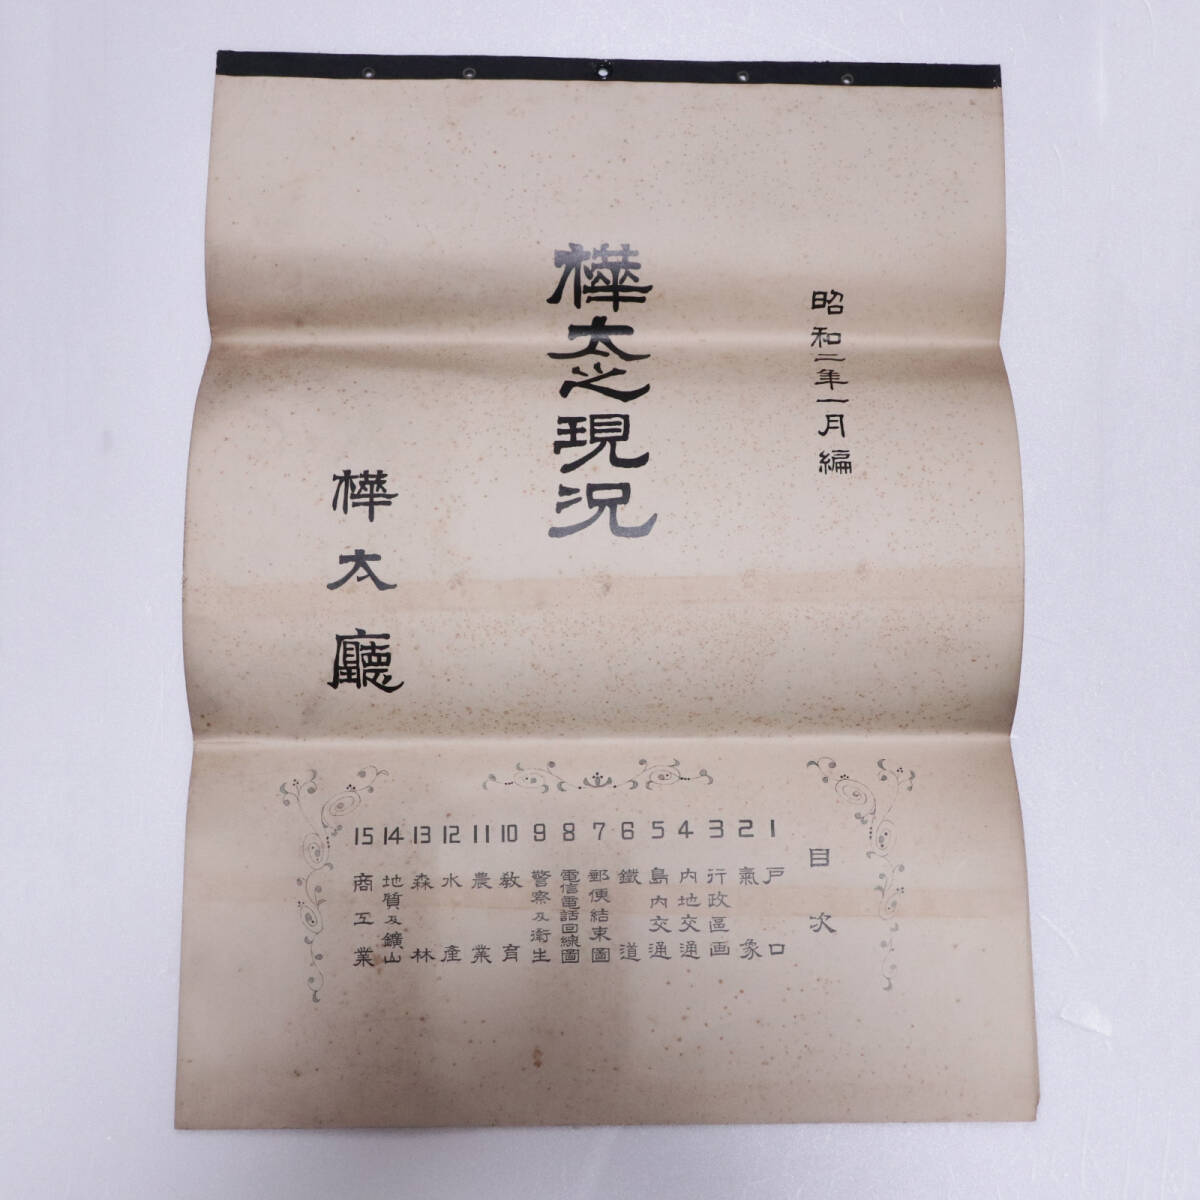 昭和二年一月編
樺太之現況
樺太廳
目次
1 戸口
2 氣象
3 行政區画
4 内地交通
5 島内交通
6 鐵道
7 郵便結束圖
8 電信電話回線圖
9 警察及衛生
10 教育
11 農業
12 水產
13 森林
14 地質及鑛山
15 商工業